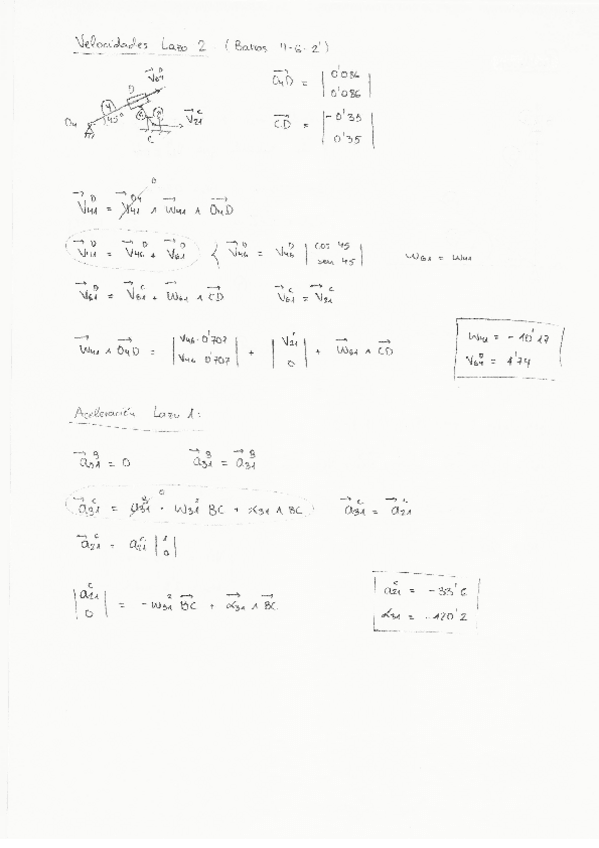 Velocidades Lazo 2 (Barras 4-6-2)
O₄D = | 0'086 0'086 |
V₆₄ᴰ
D
4
O₄ 45°
V₂₁ᶜ
C
CD = | -0'35 0'35 |
V₄₁ᴰ = V₄₁ᴼ⁴ ∧ W₄₁ ∧ O₄D
V₄₁ᴰ = V₄₆ᴰ + V₆₁ᴰ { V₄₆ᴰ = V₄₆ᴰ | cos 45 sen 45 | W₆₁ = W₄₁
V₆₁ᴰ = V₆₁ᶜ + W₆₁ ∧ CD V₆₁ᶜ = V₂₁ᶜ
W₄₁ ∧ O₄D = | V₄₆·0'707 V₄₆ 0'707 | + | V₂₁ 0 | + W₆₁ ∧ CD
W₄₁ = -10'17
V₆₄ᴰ = 1'74
Aceleración Lazo 1:
a₂₁ᴮ = 0 a₃₁ᴮ = a₃₁ᴮ
a₃₁ᶜ = a₃₁ᴮ - W₃₁² BC + α₃₁ ∧ BC a₃₁ᶜ = a₂₁ᶜ
a₂₁ᶜ = a₂₁ᶜ | 1 0 |
| a₂₁ᶜ 0 | = -W₃₁² BC + α₃₁ ∧ BC
a₂₁ᶜ = -33'6
α₃₁ = -120'2